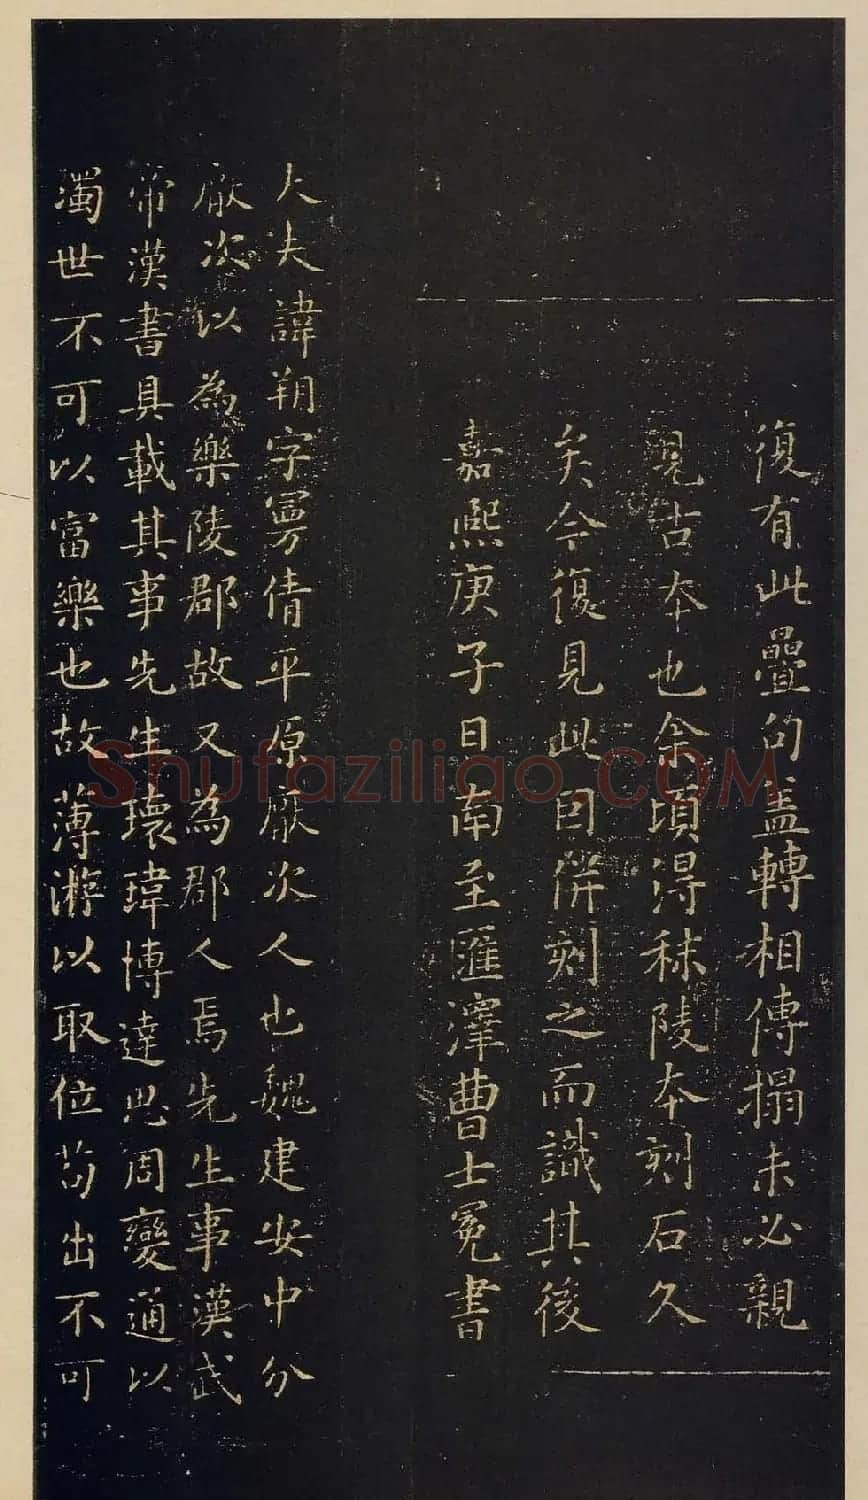 復有此疊句盖轉相傳搨未必親
見古本也余頃得秣陵本刻石久
矣今復見此因併刻之而識其後
嘉熙庚子日南至匯澤曹士冕書
大夫諱朔字曼倩平原厭次人也魏建安中分
厭次以為樂陵郡故又為郡人焉先生事漢武
帝漢書具載其事先生瓌瑋博達思周變通以
濁世不可以富樂也故薄游以取位苟出不可
Shufaziliao.COM